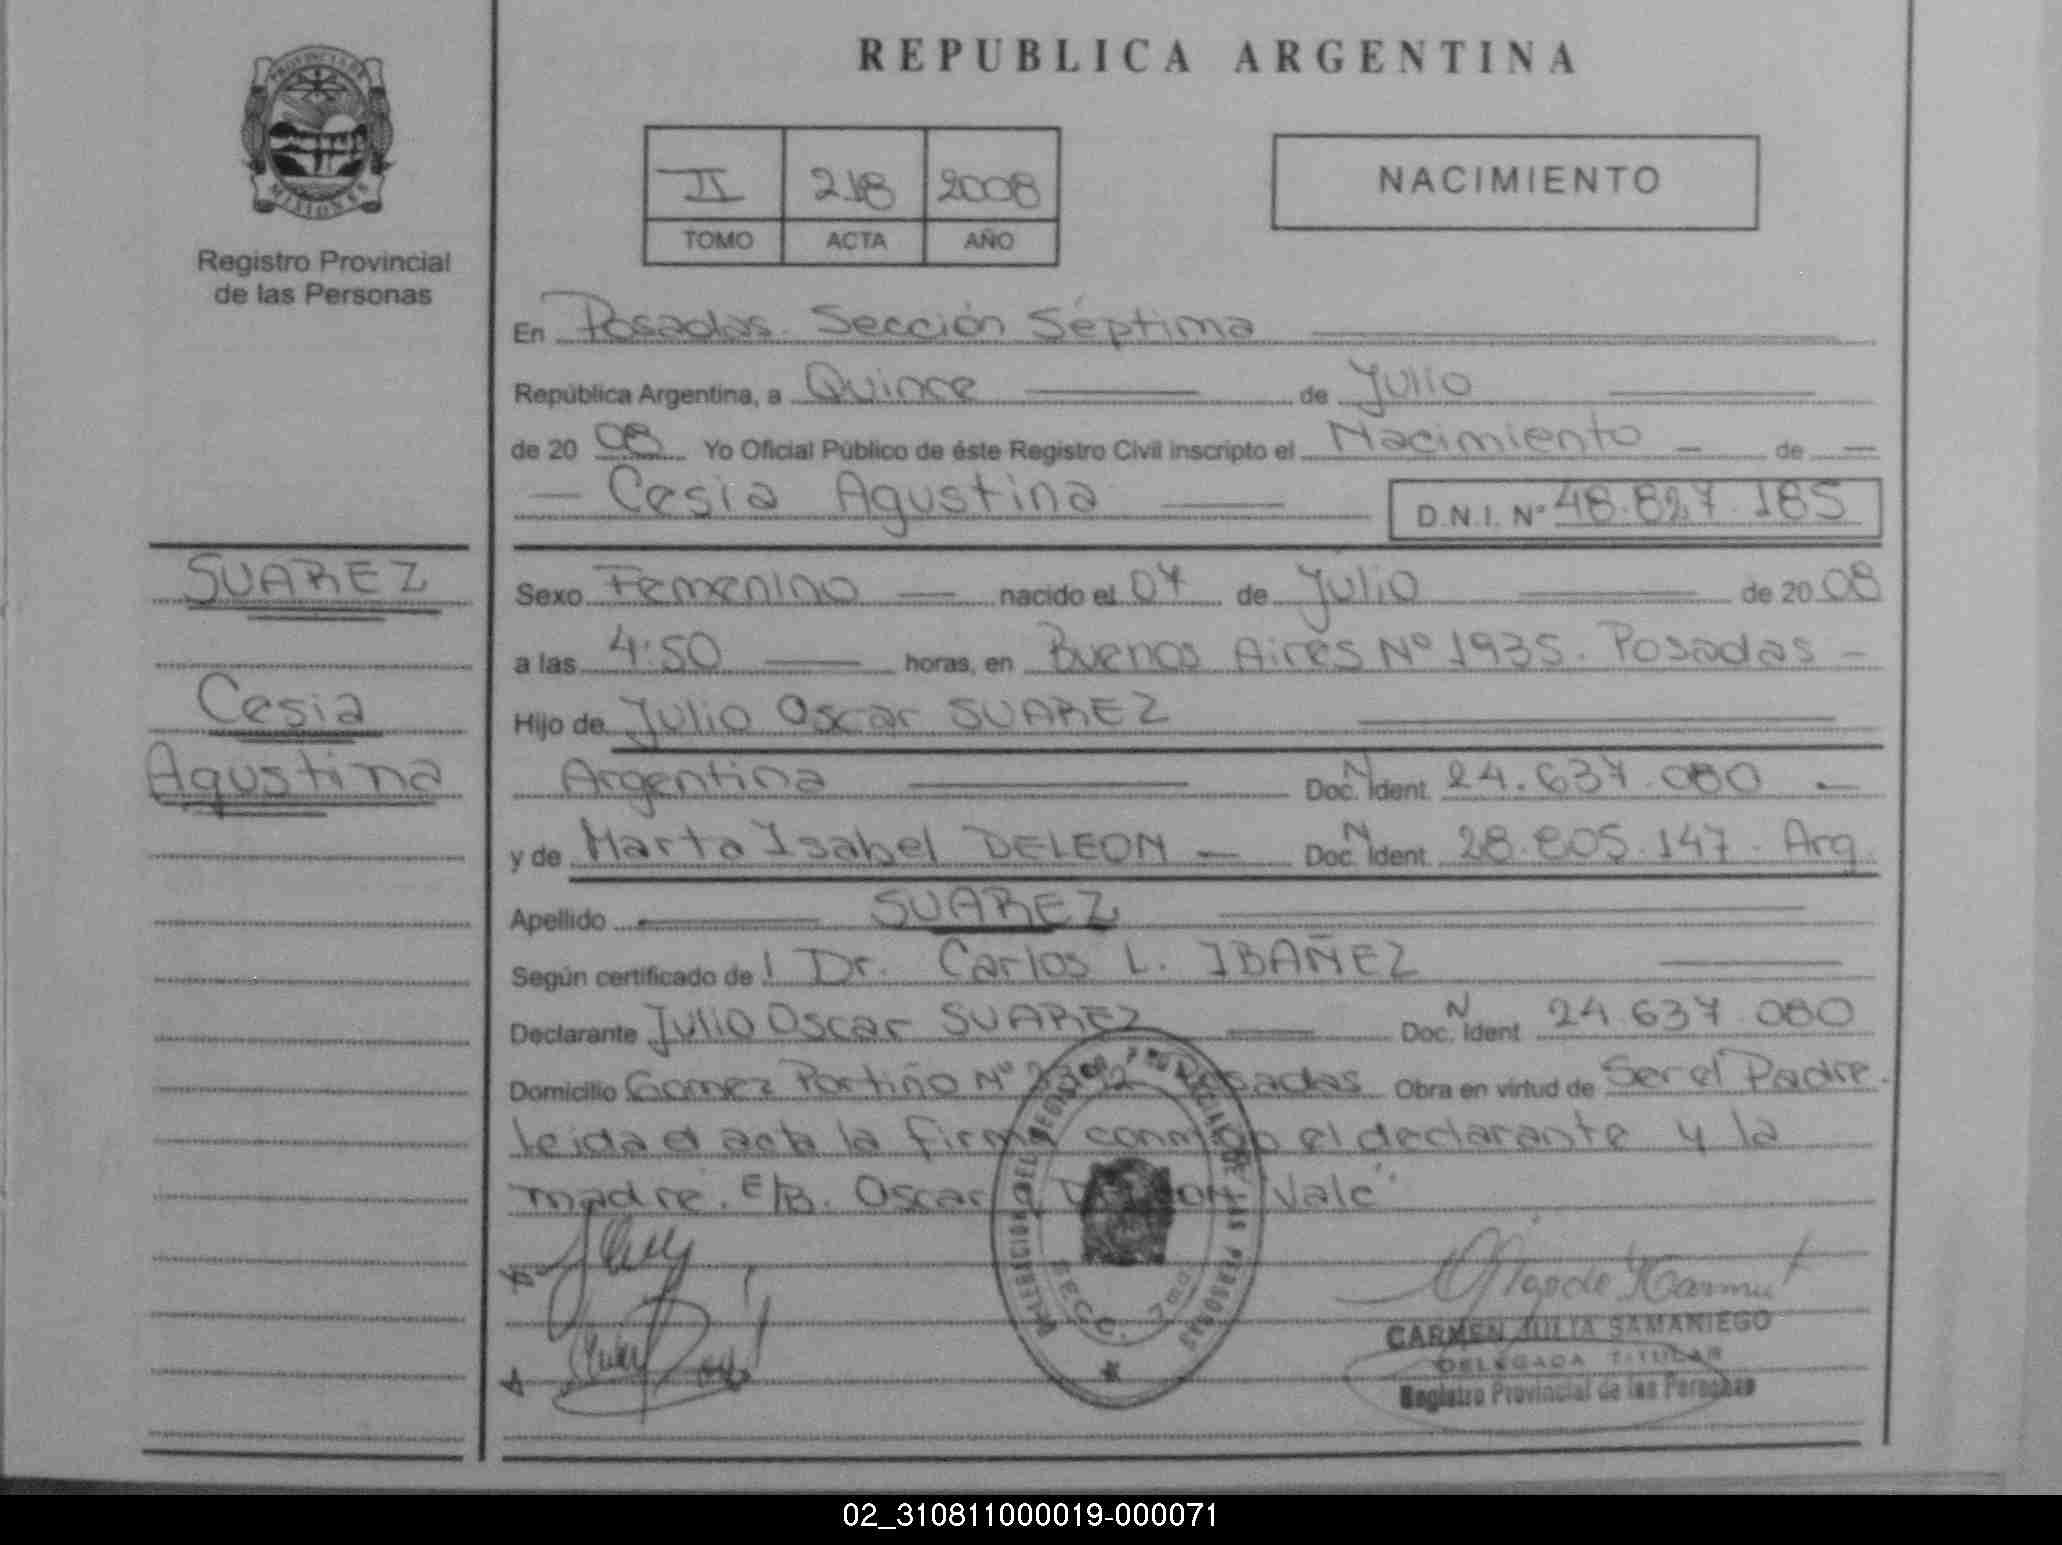 PROVINCIA DE
MISIONES
Registro Provincial
de las Personas
SUAREZ
Cesia
Agustina
REPUBLICA ARGENTINA
II 218 2008
TOMO ACTA AÑO
NACIMIENTO
En Posadas. Sección Séptima
República Argentina, a Quince de Julio
de 20 08 Yo Oficial Público de éste Registro Civil inscripto el Nacimiento de
Cesia Agustina D.N.I. Nº 48.827.185
Sexo Femenino nacido el 07 de Julio de 20 08
a las 4:50 horas, en Buenos Aires Nº 1935. Posadas
Hijo de Julio Oscar SUAREZ
Argentina Doc. N Ident. 24.637.080
y de Marta Isabel DELEON Doc. N Ident. 28.805.147. Arg.
Apellido SUAREZ
Según certificado de Dr. Carlos L. IBAÑEZ
Declarante Julio Oscar SUAREZ Doc. N Ident 24.637.080
Domicilio Gomez Portiño Nº Posadas Obra en virtud de Ser el Padre.
leida el acta la firma conmigo el declarante y la
madre. E/B. Oscar, DELEON "Vale"
SECC. 7ma
CARMEN JULIA SAMANIEGO
DELEGADA TITULAR
Registro Provincial de las Personas
02_310811000019-000071